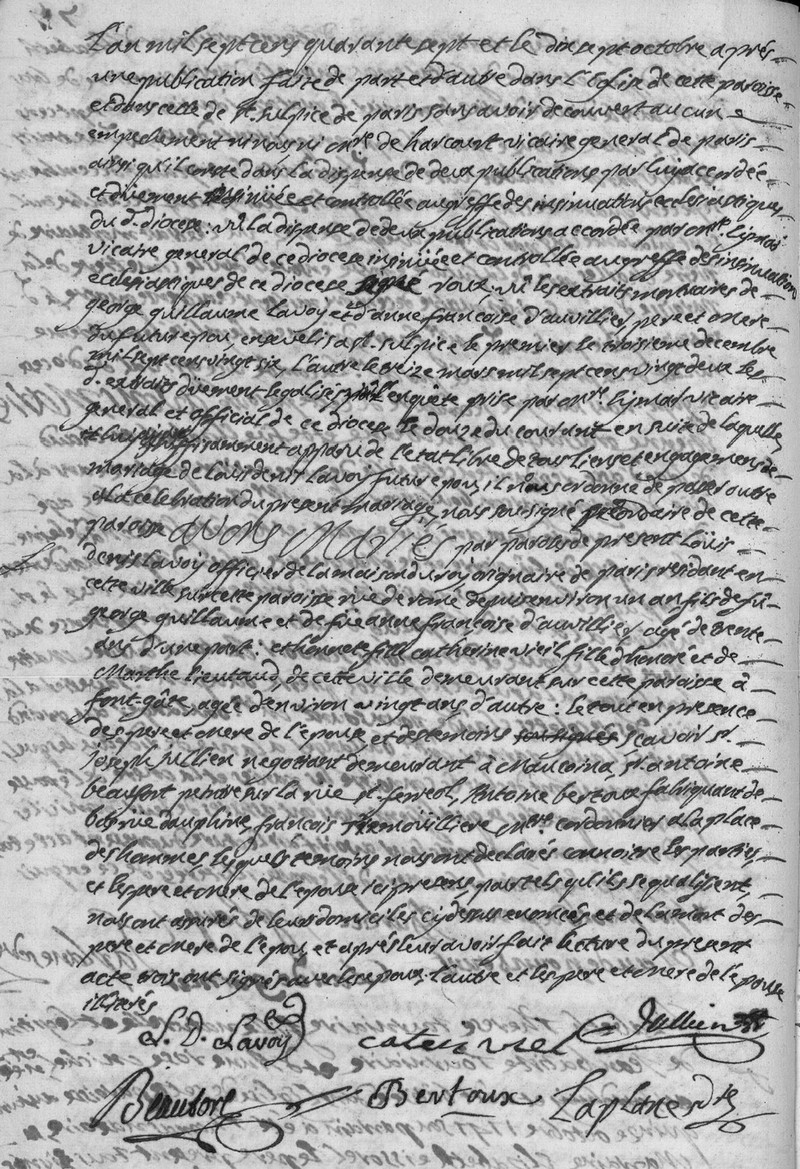 L'an mil sept cens quarante sept et le dix sept octobre après
une publication faite de part et d'autre dans l'Eglise de cette paroisse
et dans celle de St. sulpice de paris sans avoir decouvert aucun
empechement ni nous ni Mre. de harcourt vicaire general de paris
ainsi qu'il conste dans la dispense de deux publications par luy accordée
et duement insinuée et controllée au greffe des insinuations ecclesiastiques
du d. diocese : vû la dispense de deux publications accordée par Mre.
vicaire general de ce diocese insinuée et controllée au greffe des insinuations
ecclesiastiques de ce diocese signé roux, vû les extraits mortuaires de
george guillaume Lavoy et d'anne francoise d'auvillier, pere et mere
du futur epoux, ensevelis a St. sulpice le premier le troisieme decembre
mil sept cens vingt six, l'autre le treize mars mil sept cens vingt deux les
d. extraits duement legalisés, l'enquête prise par Mre. vicaire
general et official de ce diocese le douze du courant en suite de laquelle
suffisamment apparu de l'etat libre de tous liens et engagemens de
mariage de Louis denis Lavoy futur epoux, il nous ordonne de passer outre
a la celebration du present mariage, nous soussigné secondaire de cette
paroisse avons Mariés par paroles de present Loüis
denis Lavoy officier de la maison du roy originaire de paris residant en
cette ville sur cette paroisse rüe de rome depuis environ un an fils de fû
george guillaume et de füe anne francoise d'auvillier, agé de trente
ans d'une part : et honnete fille catherine vieil fille d'honoré et de
Marthe lieutaud, de cette ville demeurant sur cette paroisse à
font-gâte, agée d'environ vingt ans d'autre : le tout en presence
des pere et mere de l'epouse, et des temoins scavoir Sr.
joseph jullien negotiant demeurant à St. antoine
beaufort peintre sur la rüe St. ferreol, Antoine bertoux fabriquant de
bas rüe dauphine, francois Mtre. cordonnier a la place
des hommes, lesquels temoins nous ont declarés connoitre les parties
et les pere et mere de l'epouse ici presens pour tels qu'ils se qualifient,
nous ont assurés de leurs domiciles cy dessus enoncés, et de la mort des
pere et mere de l'epoux, et après leur avoir fait lecture du present
acte trois ont signés avec les epoux l'autre et les pere et mere de l'epouse
illiterés
L. D. Lavoy caterin viel Jullien
Beaufort Bertoux Laplane